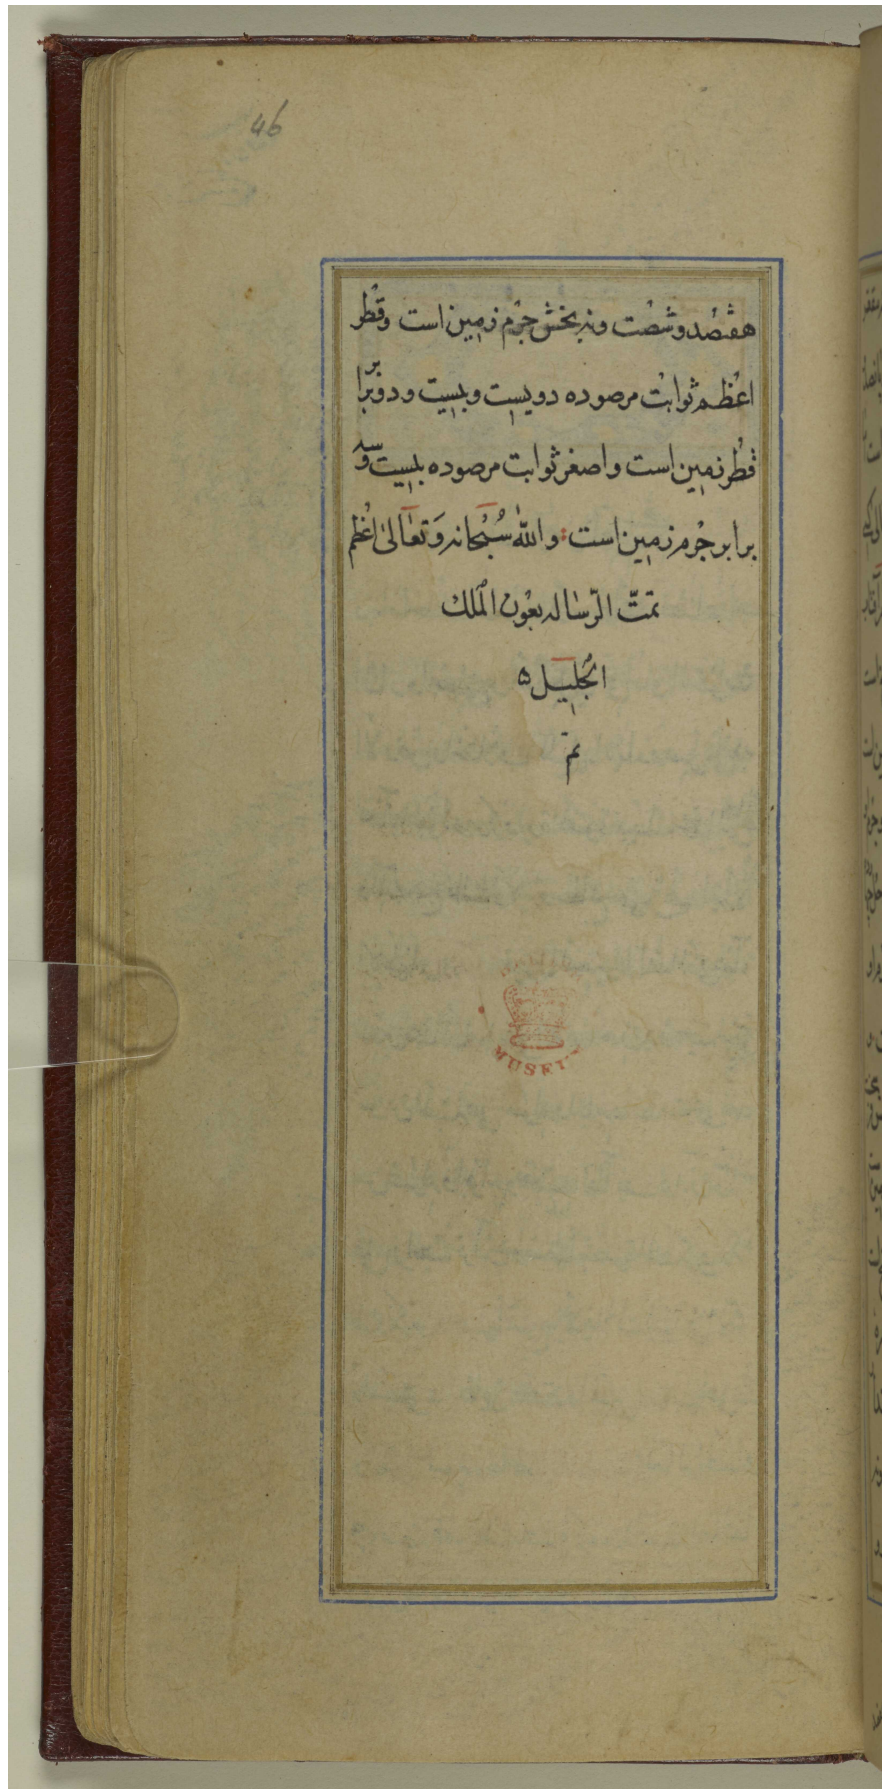 46
هفتصد و شصت و نه بخش جرم زمین است و قطر
اعظم ثوابت مرصوده دویست و بیست و دو برابر
قطر زمین است و اصغر ثوابت مرصوده بیست و سه
برابر جرم زمین است والله سُبْحانه وَتعَالیٰ اعْلم
تمّتّ الرّسٰاله بعَوْن المَلك
الجَلیِل ۵
تمّ
MUSEU